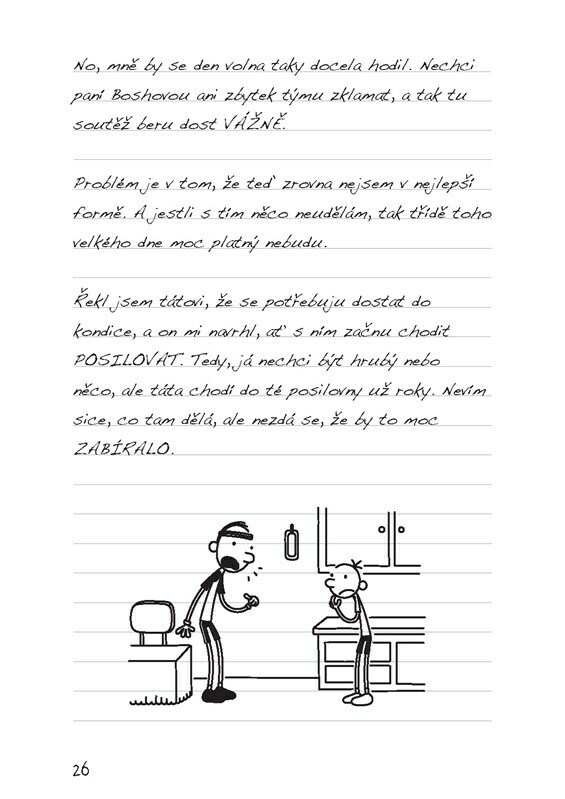 No, mně by se den volna taky docela hodil. Nechci
paní Boshovou ani zbytek týmu zklamat, a tak tu
soutěž beru dost VÁŽNĚ.
Problém je v tom, že teď zrovna nejsem v nejlepší
formě. A jestli s tím něco neudělám, tak třídě toho
velkého dne moc platný nebudu.
Řekl jsem tátovi, že se potřebuju dostat do
kondice, a on mi navrhl, ať s ním začnu chodit
POSILOVAT. Tedy, já nechci být hrubý nebo
něco, ale táta chodí do té posilovny už roky. Nevím
sice, co tam dělá, ale nezdá se, že by to moc
ZABÍRALO.
26